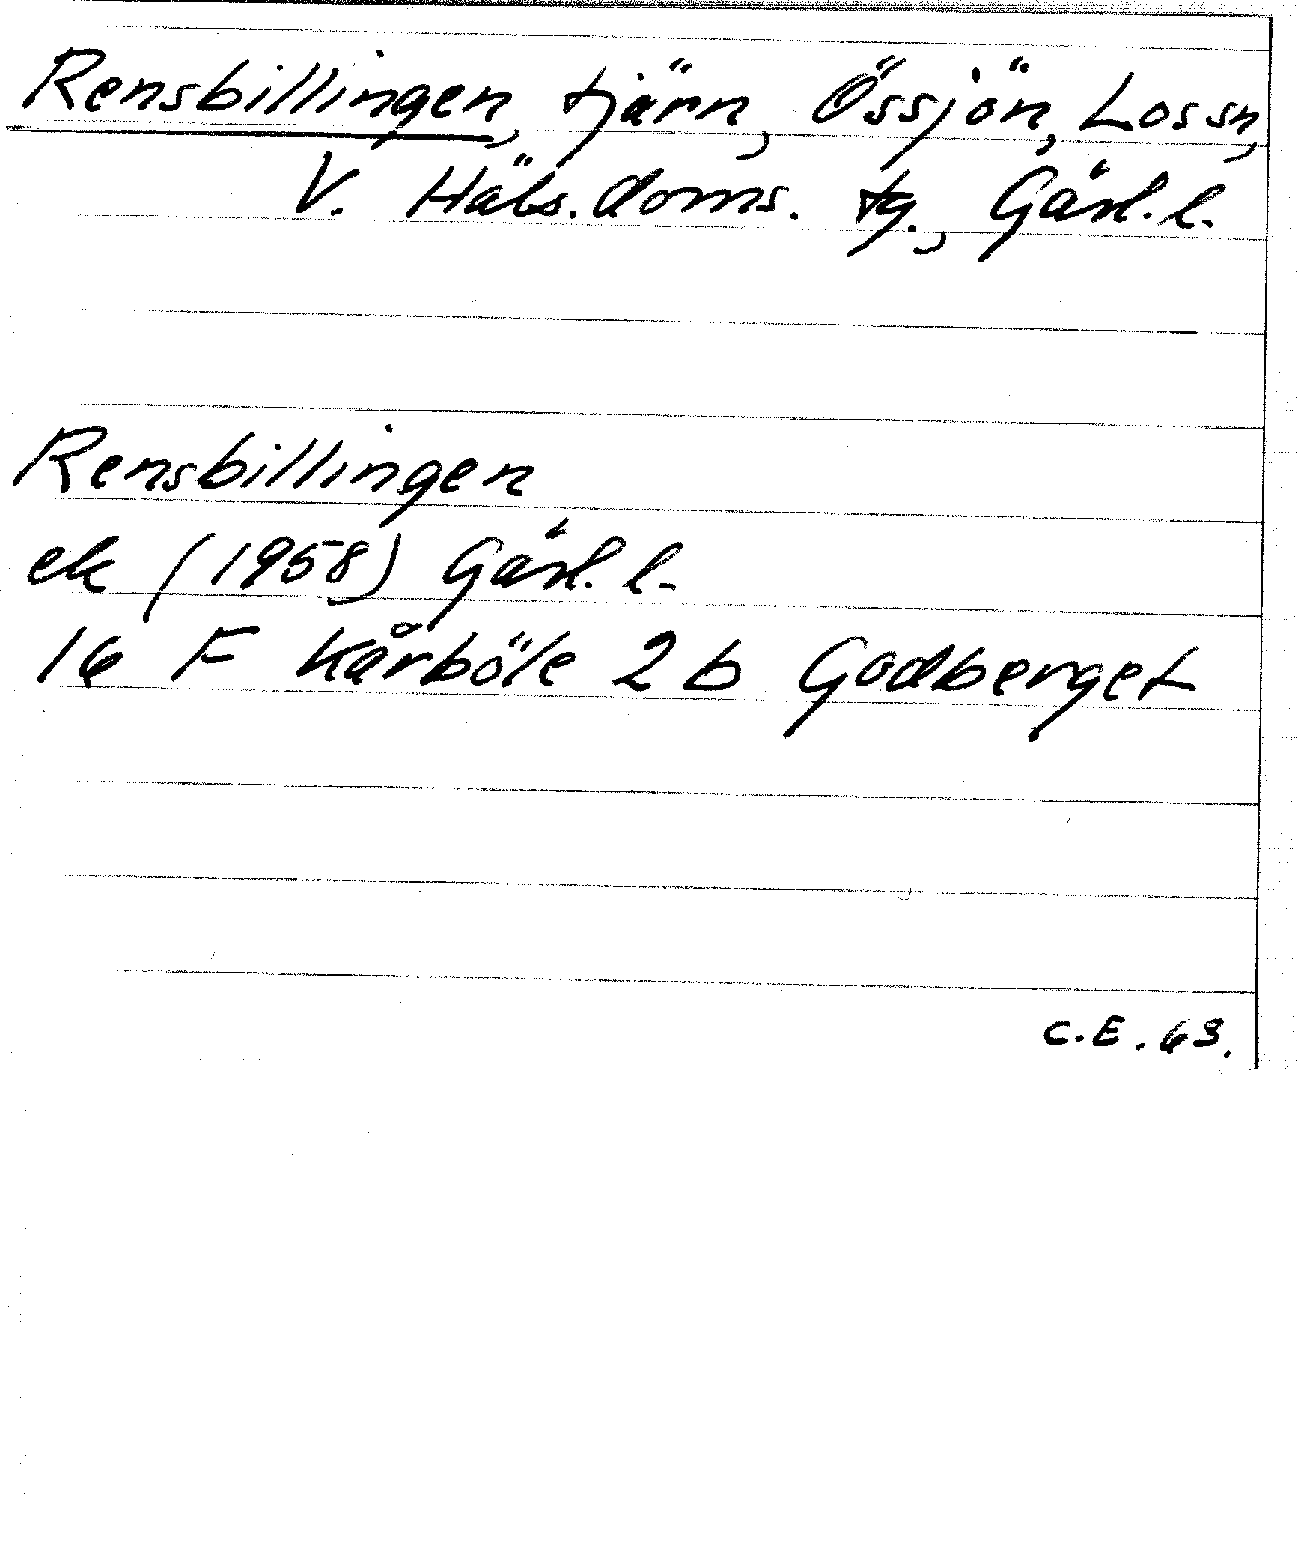 Rensbillingen, tjärn, Össjön, Lossn,
V. Häls. doms. tg., Gävl. l.
Rensbillingen
ek (1958) Gävl. l.
16 F Kårböle 2 b Godberget
C.E. 63.